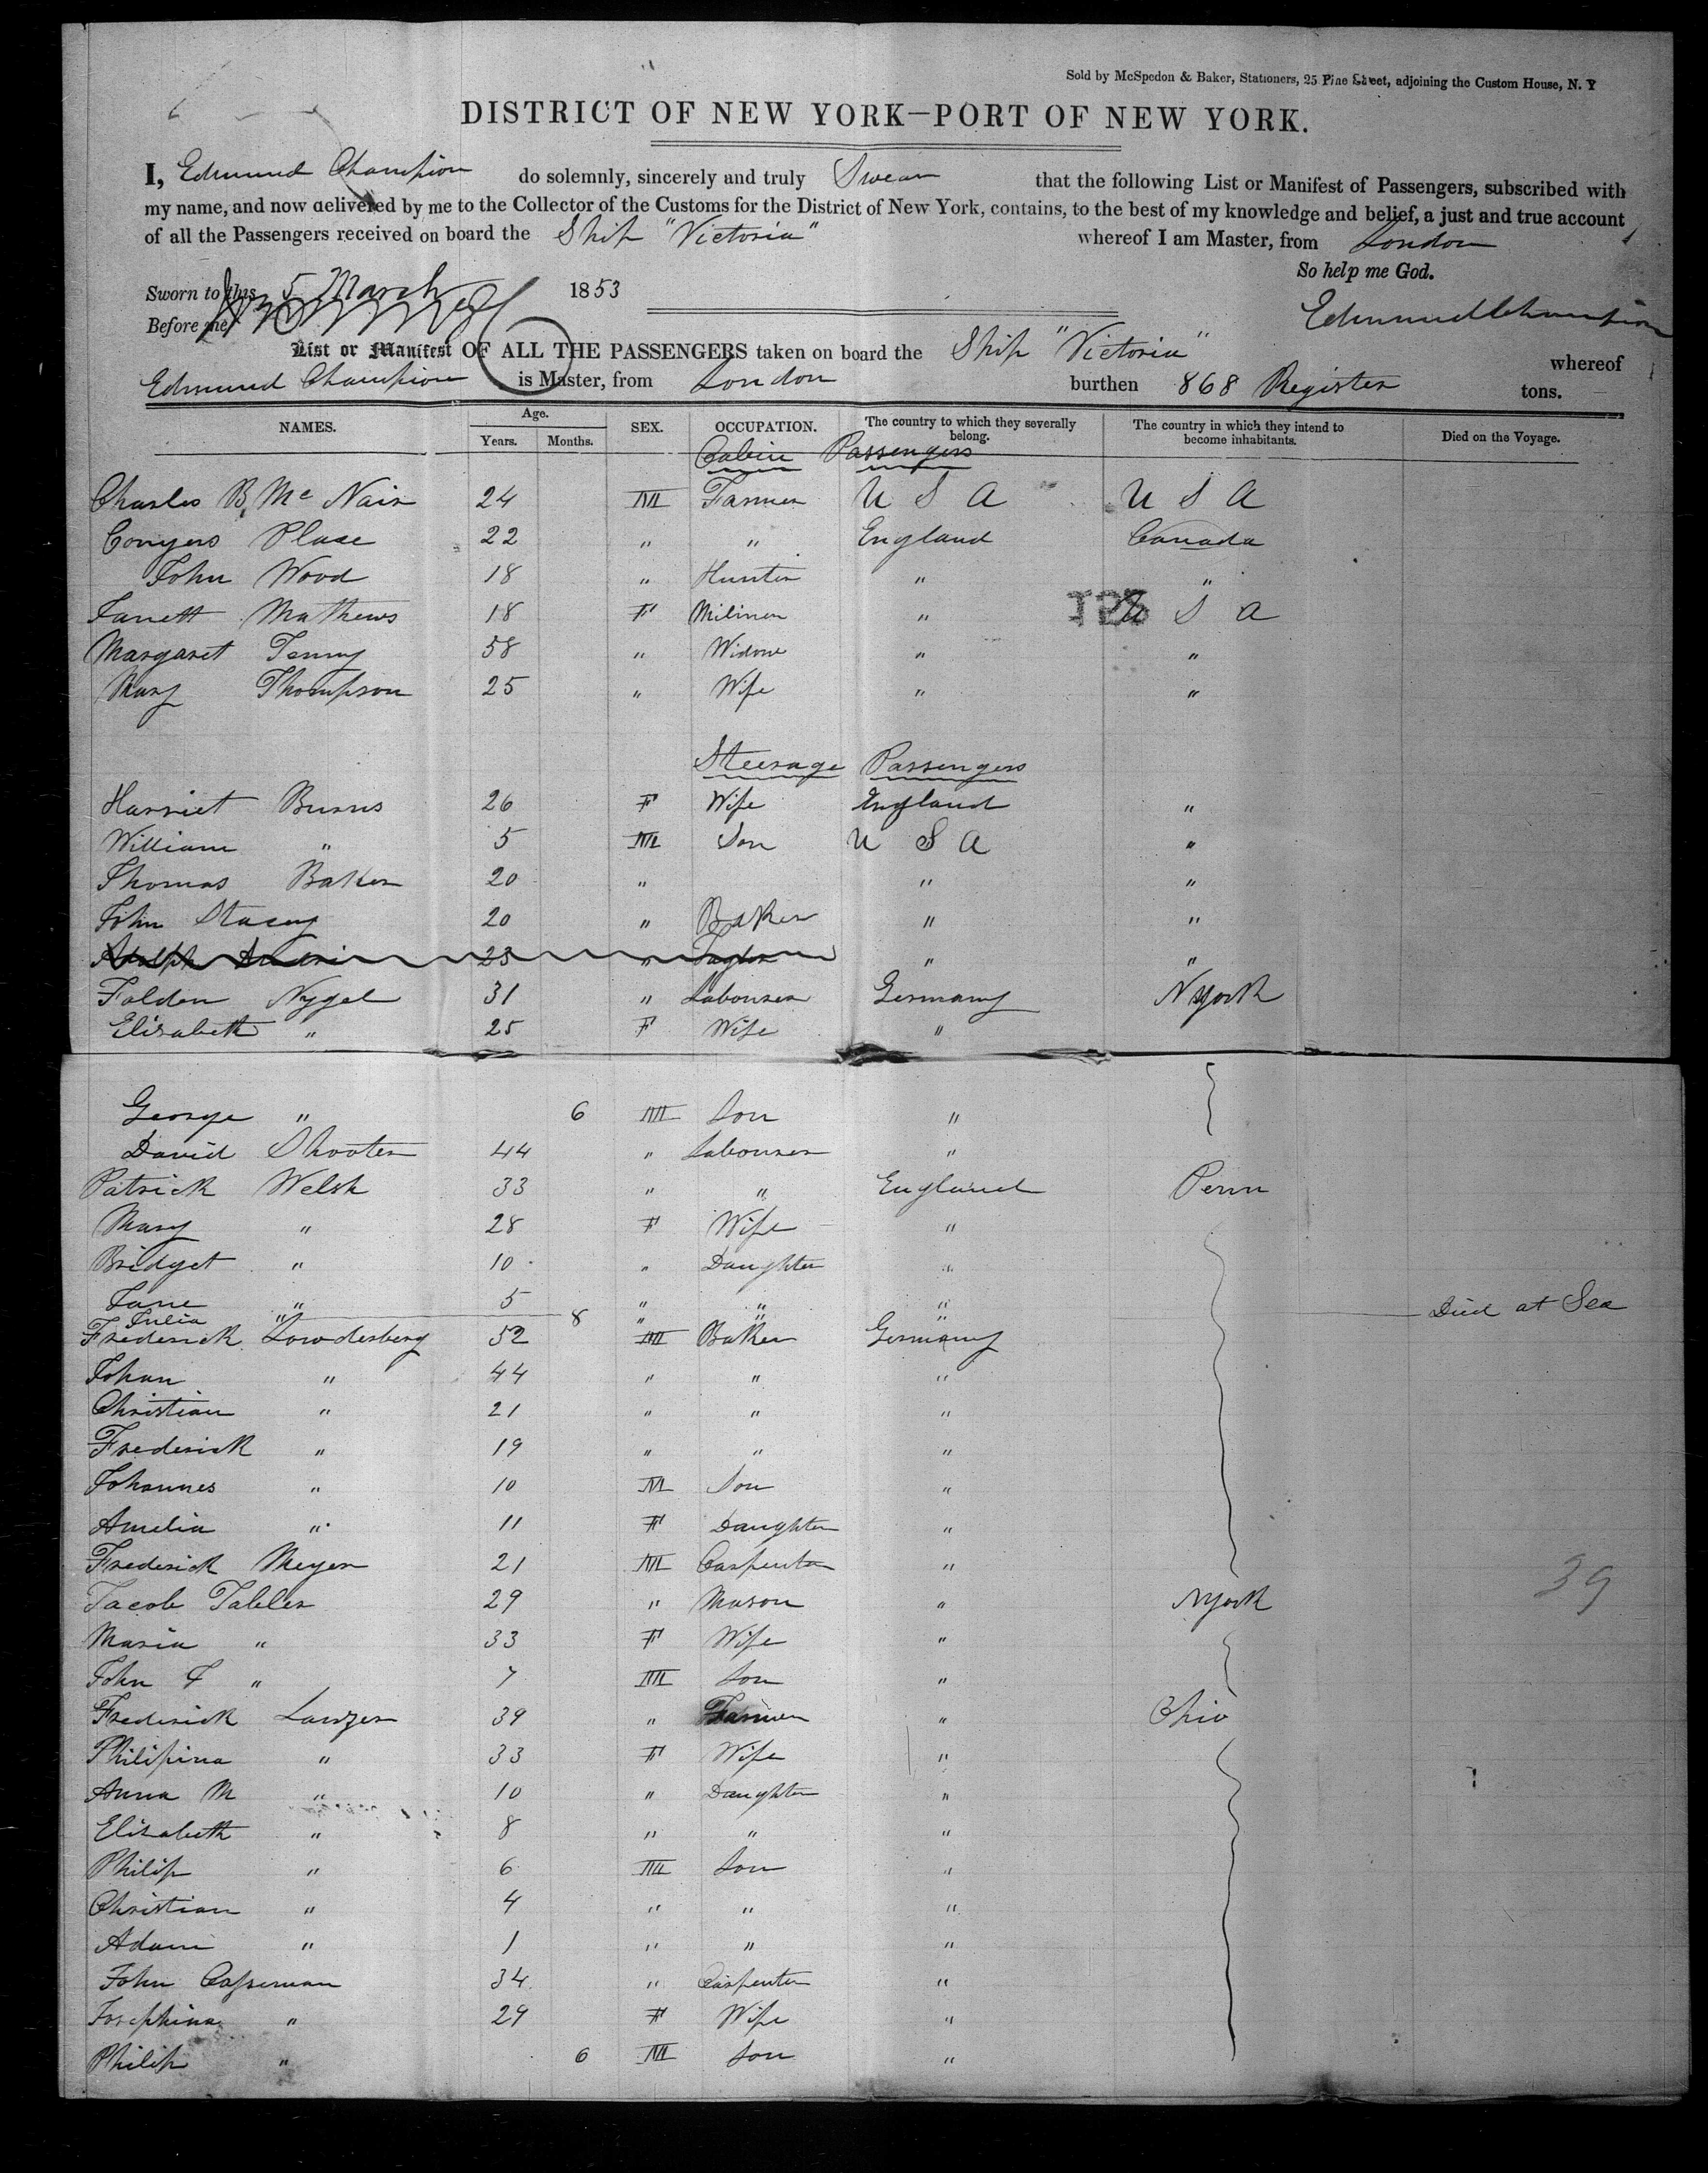 Sold by McSpedon & Baker, Stationers, 25 Pine Street, adjoining the Custom House, N. Y
DISTRICT OF NEW YORK—PORT OF NEW YORK.
I, Edmund Champion do solemnly, sincerely and truly Swear that the following List or Manifest of Passengers, subscribed with
my name, and now delivered by me to the Collector of the Customs for the District of New York, contains, to the best of my knowledge and belief, a just and true account
of all the Passengers received on board the Ship "Victoria" whereof I am Master, from London
So help me God.
Sworn to this 5 March 1853
Before me
Edmund Champion
List or Manifest OF ALL THE PASSENGERS taken on board the Ship "Victoria" whereof
Edmund Champion is Master, from London burthen 868 Register tons.
NAMES. Age. Years. Months. SEX. OCCUPATION. The country to which they severally belong. The country in which they intend to become inhabitants. Died on the Voyage.
Cabin Passengers
Charles B. Mc Nair 24 M Farmer U S A U S A
Conyers Place 22 " " England Canada
John Wood 18 " Hunter " "
Janett Mathews 18 F Miliner " U S A
Margaret Tenny 58 " Widow " "
Mary Thompson 25 " Wife " "
Steerage Passengers
Harriet Burns 26 F Wife England "
William " 5 M Son U S A "
Thomas Baker 20 " " "
John Stacey 20 " Baker " "
Adolph 23 " Taylor " "
Folden Nygel 31 " Labourer Germany NYork
Elizabeth " 25 F Wife "
George " 6 M Son "
David Shooter 44 " Labourer "
Patrick Welsh 33 " " England Penn
Mary " 28 F Wife "
Bridget " 10 " Daughter "
Jane " 5 " " "
Julia " 8 " " " Died at Sea
Frederick Lowdesberg 52 M Baker Germany
Johan " 44 " " "
Christian " 21 " " "
Frederick " 19 " " "
Johannes " 10 M Son "
Amelia " 11 F Daughter "
Frederick Meyer 21 M Carpenter "
Jacob Tabler 29 " Mason " NYork
Maria " 33 F Wife "
John F " 7 M Son "
Frederick Lanzer 39 " Farmer " Ohio
Philipina " 33 F Wife "
Anna M " 10 " Daughter "
Elizabeth " 8 " " "
Philip " 6 M Son "
Christian " 4 " " "
Adam " 1 " " "
John Casserman 34 " Carpenter "
Josephina " 29 F Wife "
Philip " 6 M Son "
39